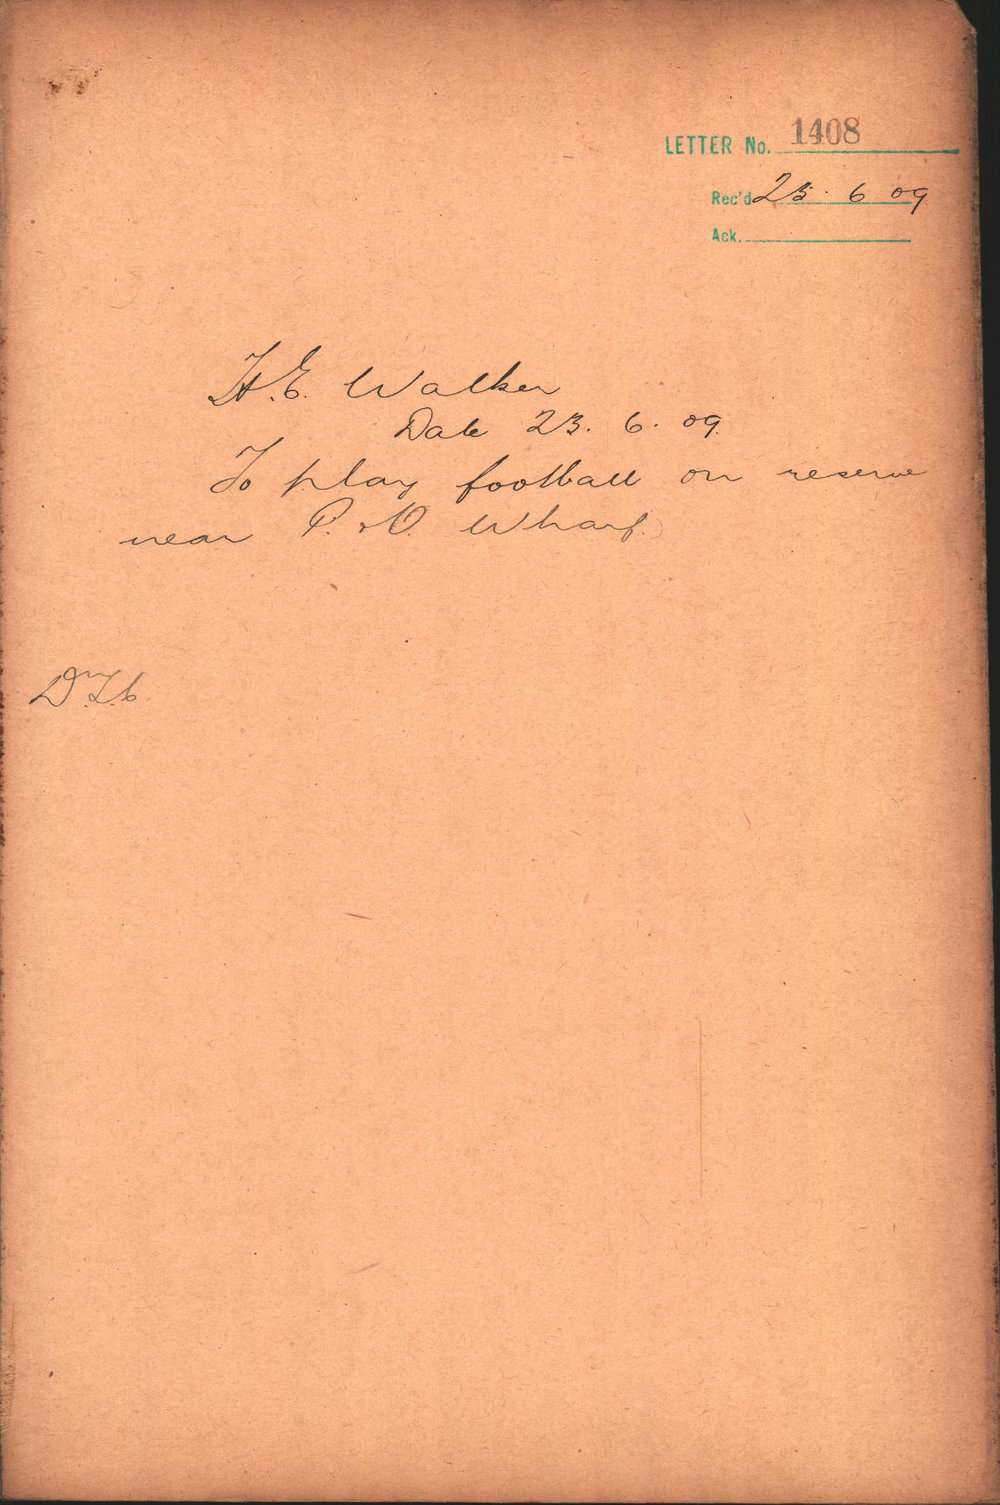 LETTER No. 1408
Rec'd 23. 6 09
Ack.
H.E. Walker
Date 23. 6. 09.
To play football on reserve
near P. & O. Wharf.